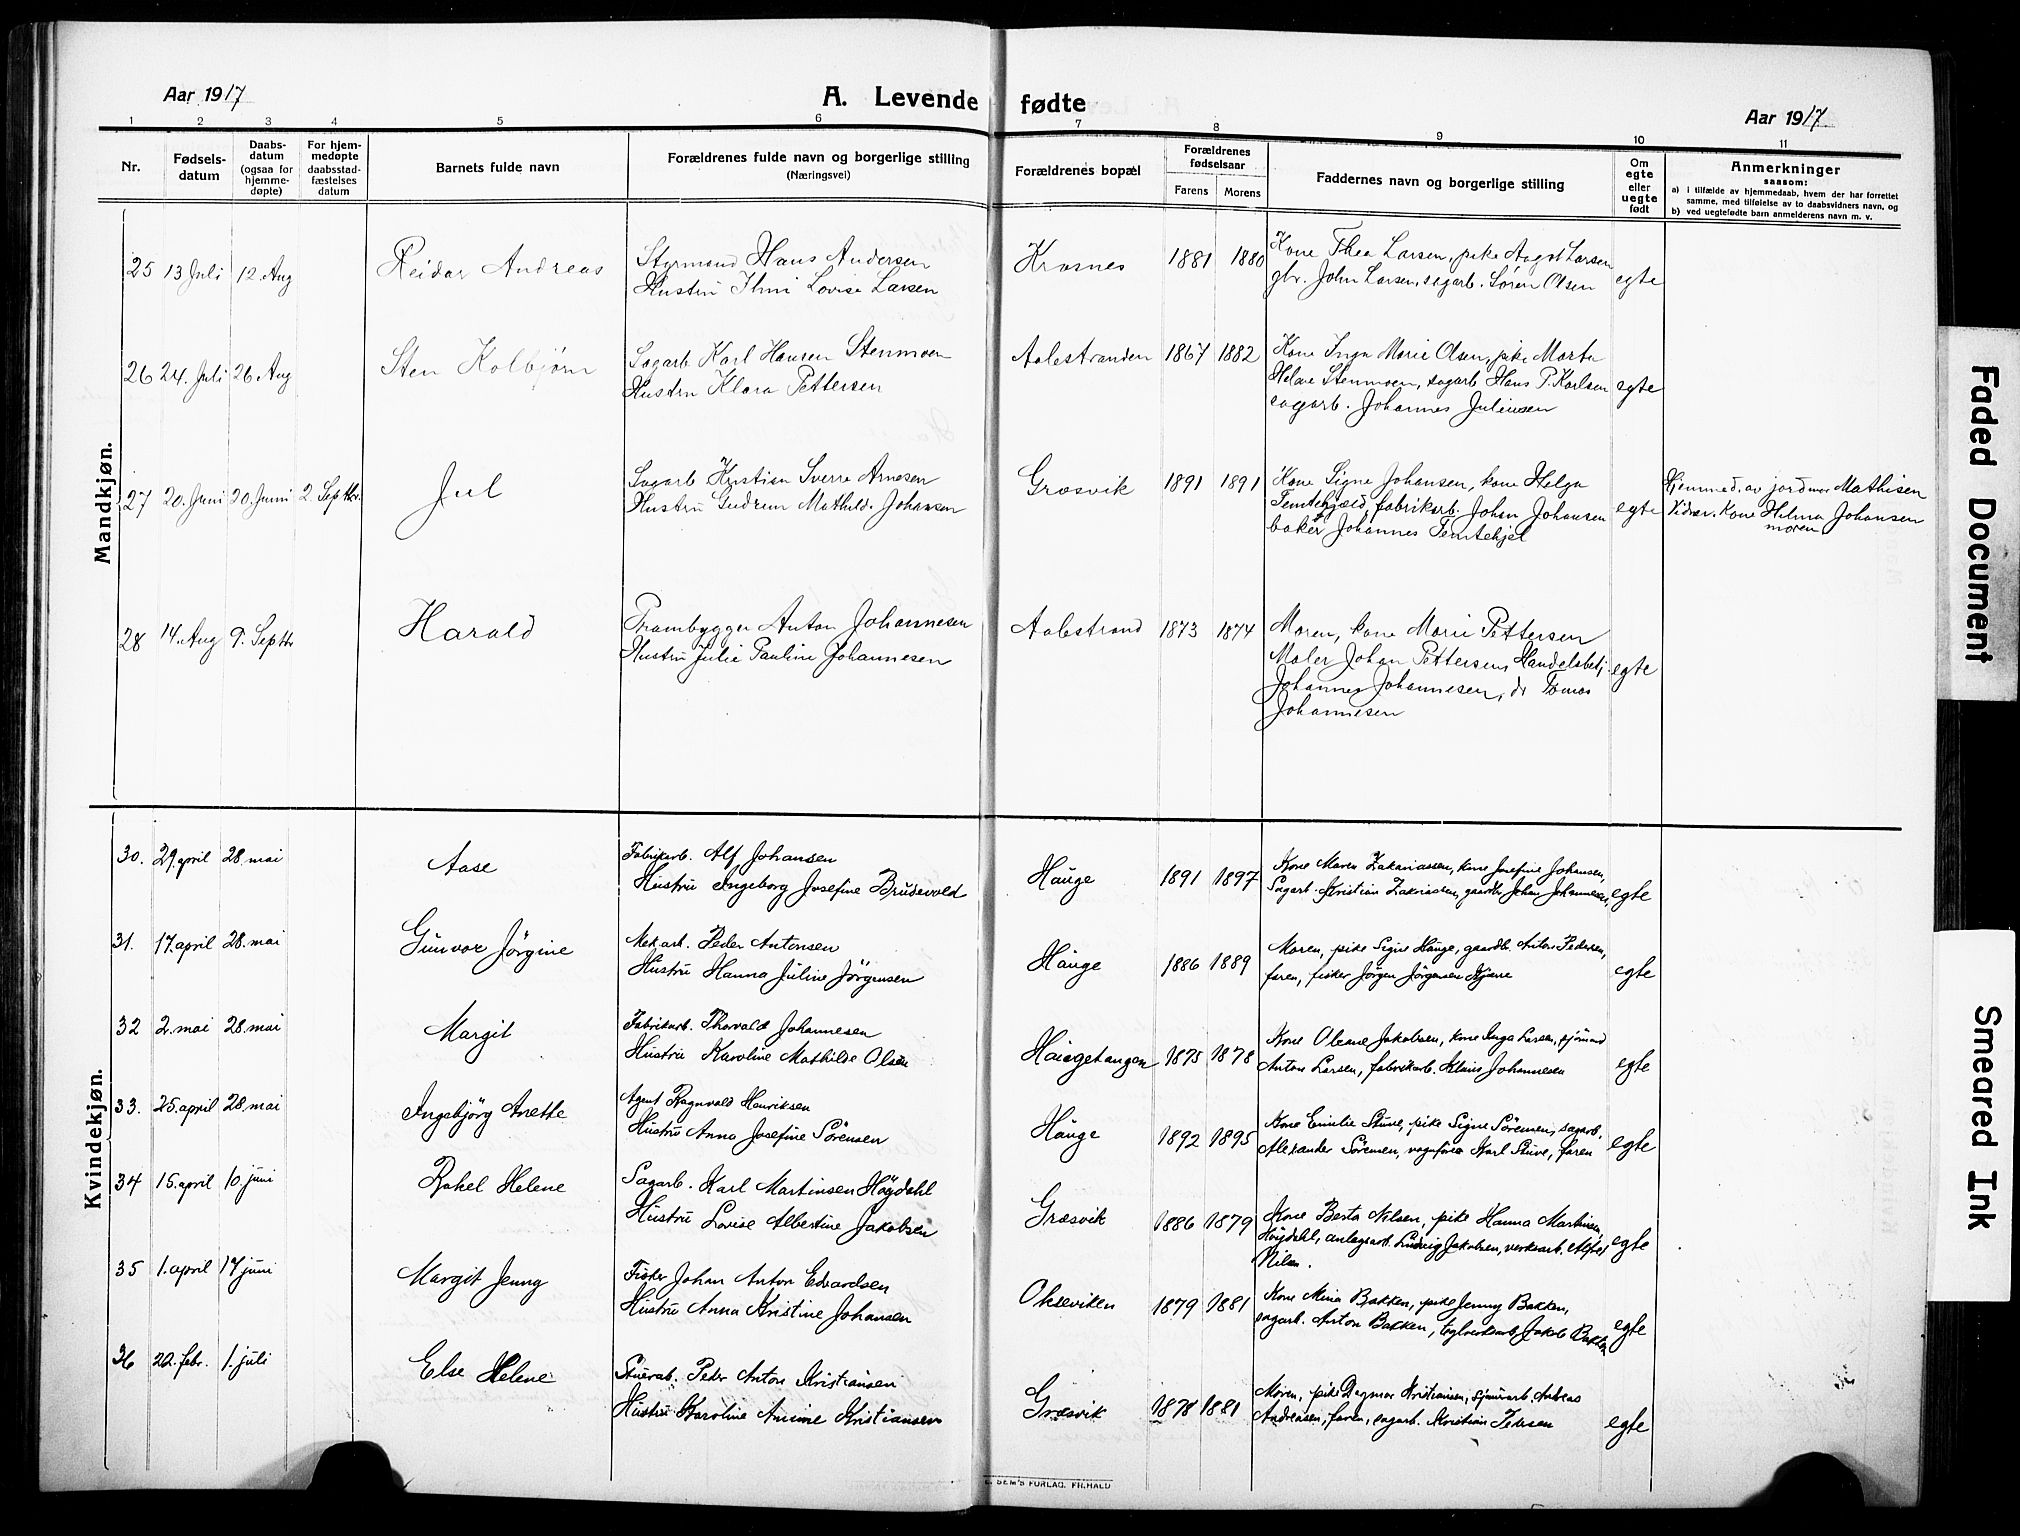 Aar 1917
A. Levende fødte
Aar 1917
1 2 3 4 5 6 7 8 9 10 11
Nr.
Fødsels-
datum
Daabs-
datum
(ogsaa for
hjemme-
døpte)
For hjem-
medøpte
daabsstad-
fæstelses
datum
Barnets fulde navn
Forældrenes fulde navn og borgerlige stilling
(Næringsvei)
Forældrenes bopæl
Forældrenes
fødselsaar
Farens Morens
Faddernes navn og borgerlige stilling
Om
egte
eller
uegte
født
Anmerkninger
saasom:
a) i tilfælde av hjemmedaab, hvem der har forrettet
samme, med tilføielse av to daabsvidners navn, og
b) ved uegtefødte barn anmelderens navn m. v.
Mandkjøn.
25 13 Juli 12. Aug
Reidar Andreas
Styrmand Hans Andersen
Hustru Thni Lovise Larsen
Krosnes
1881 1880
Kone Thea Larsen, pike Aagot Larsen
gbr. John Larsen, sagarb. Søren Olsen
egte
26 24. Juli 26 Aug
Sten Kolbjørn
Sagarb Karl Hansen Stenmoen
Hustru Klara Pettersen
Aalestranden
1867 1882
Kone Inga Marie Olsen, pike Marta
Helene Stenmoen, sagarb Hans P. Karlsen
sagarb. Johannes Juliussen
egte
27 20. Juni 20. Juni 2. Septbr.
Jul
Sagarb Kristian Sverre Arnesen
Hustru Gudrun Mathilde Johansen
Græsvik
1891 1891
Kone Signe Johansen, kone Helga
Temtehjæld, fabrikarb. Johan Johansen
baker Johannes Temtehjel
egte
Hjemmed. av jordmor Mathisen
Vidner. Kone Helma Johansen
moren
28 14. Aug 9. Septbr
Harald
Prambygger Anton Johannesen
Hustru Julie Pauline Johannesen
Aalestrand
1873 1874
Moren, kone Marie Pettersen
Maler Johan Pettersen, Handelsbetj.
Johannes Johannesen, do Tomas
Johannesen
egte
Kvindekjøn.
30. 29. april 28. mai
Aase
Fabrikarb. Alf Johansen
Hustru Ingeborg Josefine Brudevold
Hauge
1891 1897
Kone Maren Zakariassen, kone Josefine Johansen,
Sagarb. Kristian Zakariassen, gaardbr Johan Johannesen,
egte
31. 17. april 28. mai
Gunvor Jörgine
Mek arb. Peder Antonsen
Hustru Hanna Juline Jörgensen
Hauge
1886 1889
Moren, pike Signe Hauge, gaardb. Anton Pedersen,
faren, fisker Jörgen Jörgensen Kjærre
egte
32 2. mai 28. mai
Margit
Fabrikarb. Thorvald Johannesen
Hustru Karoline Mathilde Olsen
Haugetangen
1875 1878
Kone Oleane Jakobsen, kone Inga Larsen, sjömand
Anton Larsen, fabrikarb. Klaus Johannesen
egte
33. 25. april 28. mai
Ingebjörg Anette
Agent Ragnvald Henriksen
Hustru Anna Josefine Sörensen
Hauge
1892 1895
Kone Emilie Stuve, pike Signe Sörensen, sagarb.
Alexander Sörensen, vognförer Karl Stuve, faren
egte
34 15. april 10. juni
Rakel Helene
Sagarb. Karl Martinsen Høgdahl
Hustru Lovise Albertine Jakobsen
Græsvik
1886 1879
Kone Berta Nilsen, pike Hanna Martinsen
Höydahl, anlægsarb. Ludvig Jakobsen, verksarb. Alfred
Nilsen.
egte
35 1. april 17 juni
Margit Jenny
Fisker Johan Anton Edvardsen
Hustru Anna Kristine Johansen
Okseviken
1879 1881
Kone Mina Bakken, pike Jenny Bakken,
sagarb. Anton Bakken, teglverksarb Jakob Bakken
egte
36 22. febr. 1. juli
Else Helene
Stuerab. Peder Anton Kristiansen
Hustru Karoline Annine Kristiansen
Græsvik
1878 1881
Moren, pike Dagmar Kristiansen, sjauerarb Andreas
Andreasen, faren, sagarb. Kristian Pedersen
egte
SEM'S FORLAG, FR.HALD
Faded Document
Smeared Ink